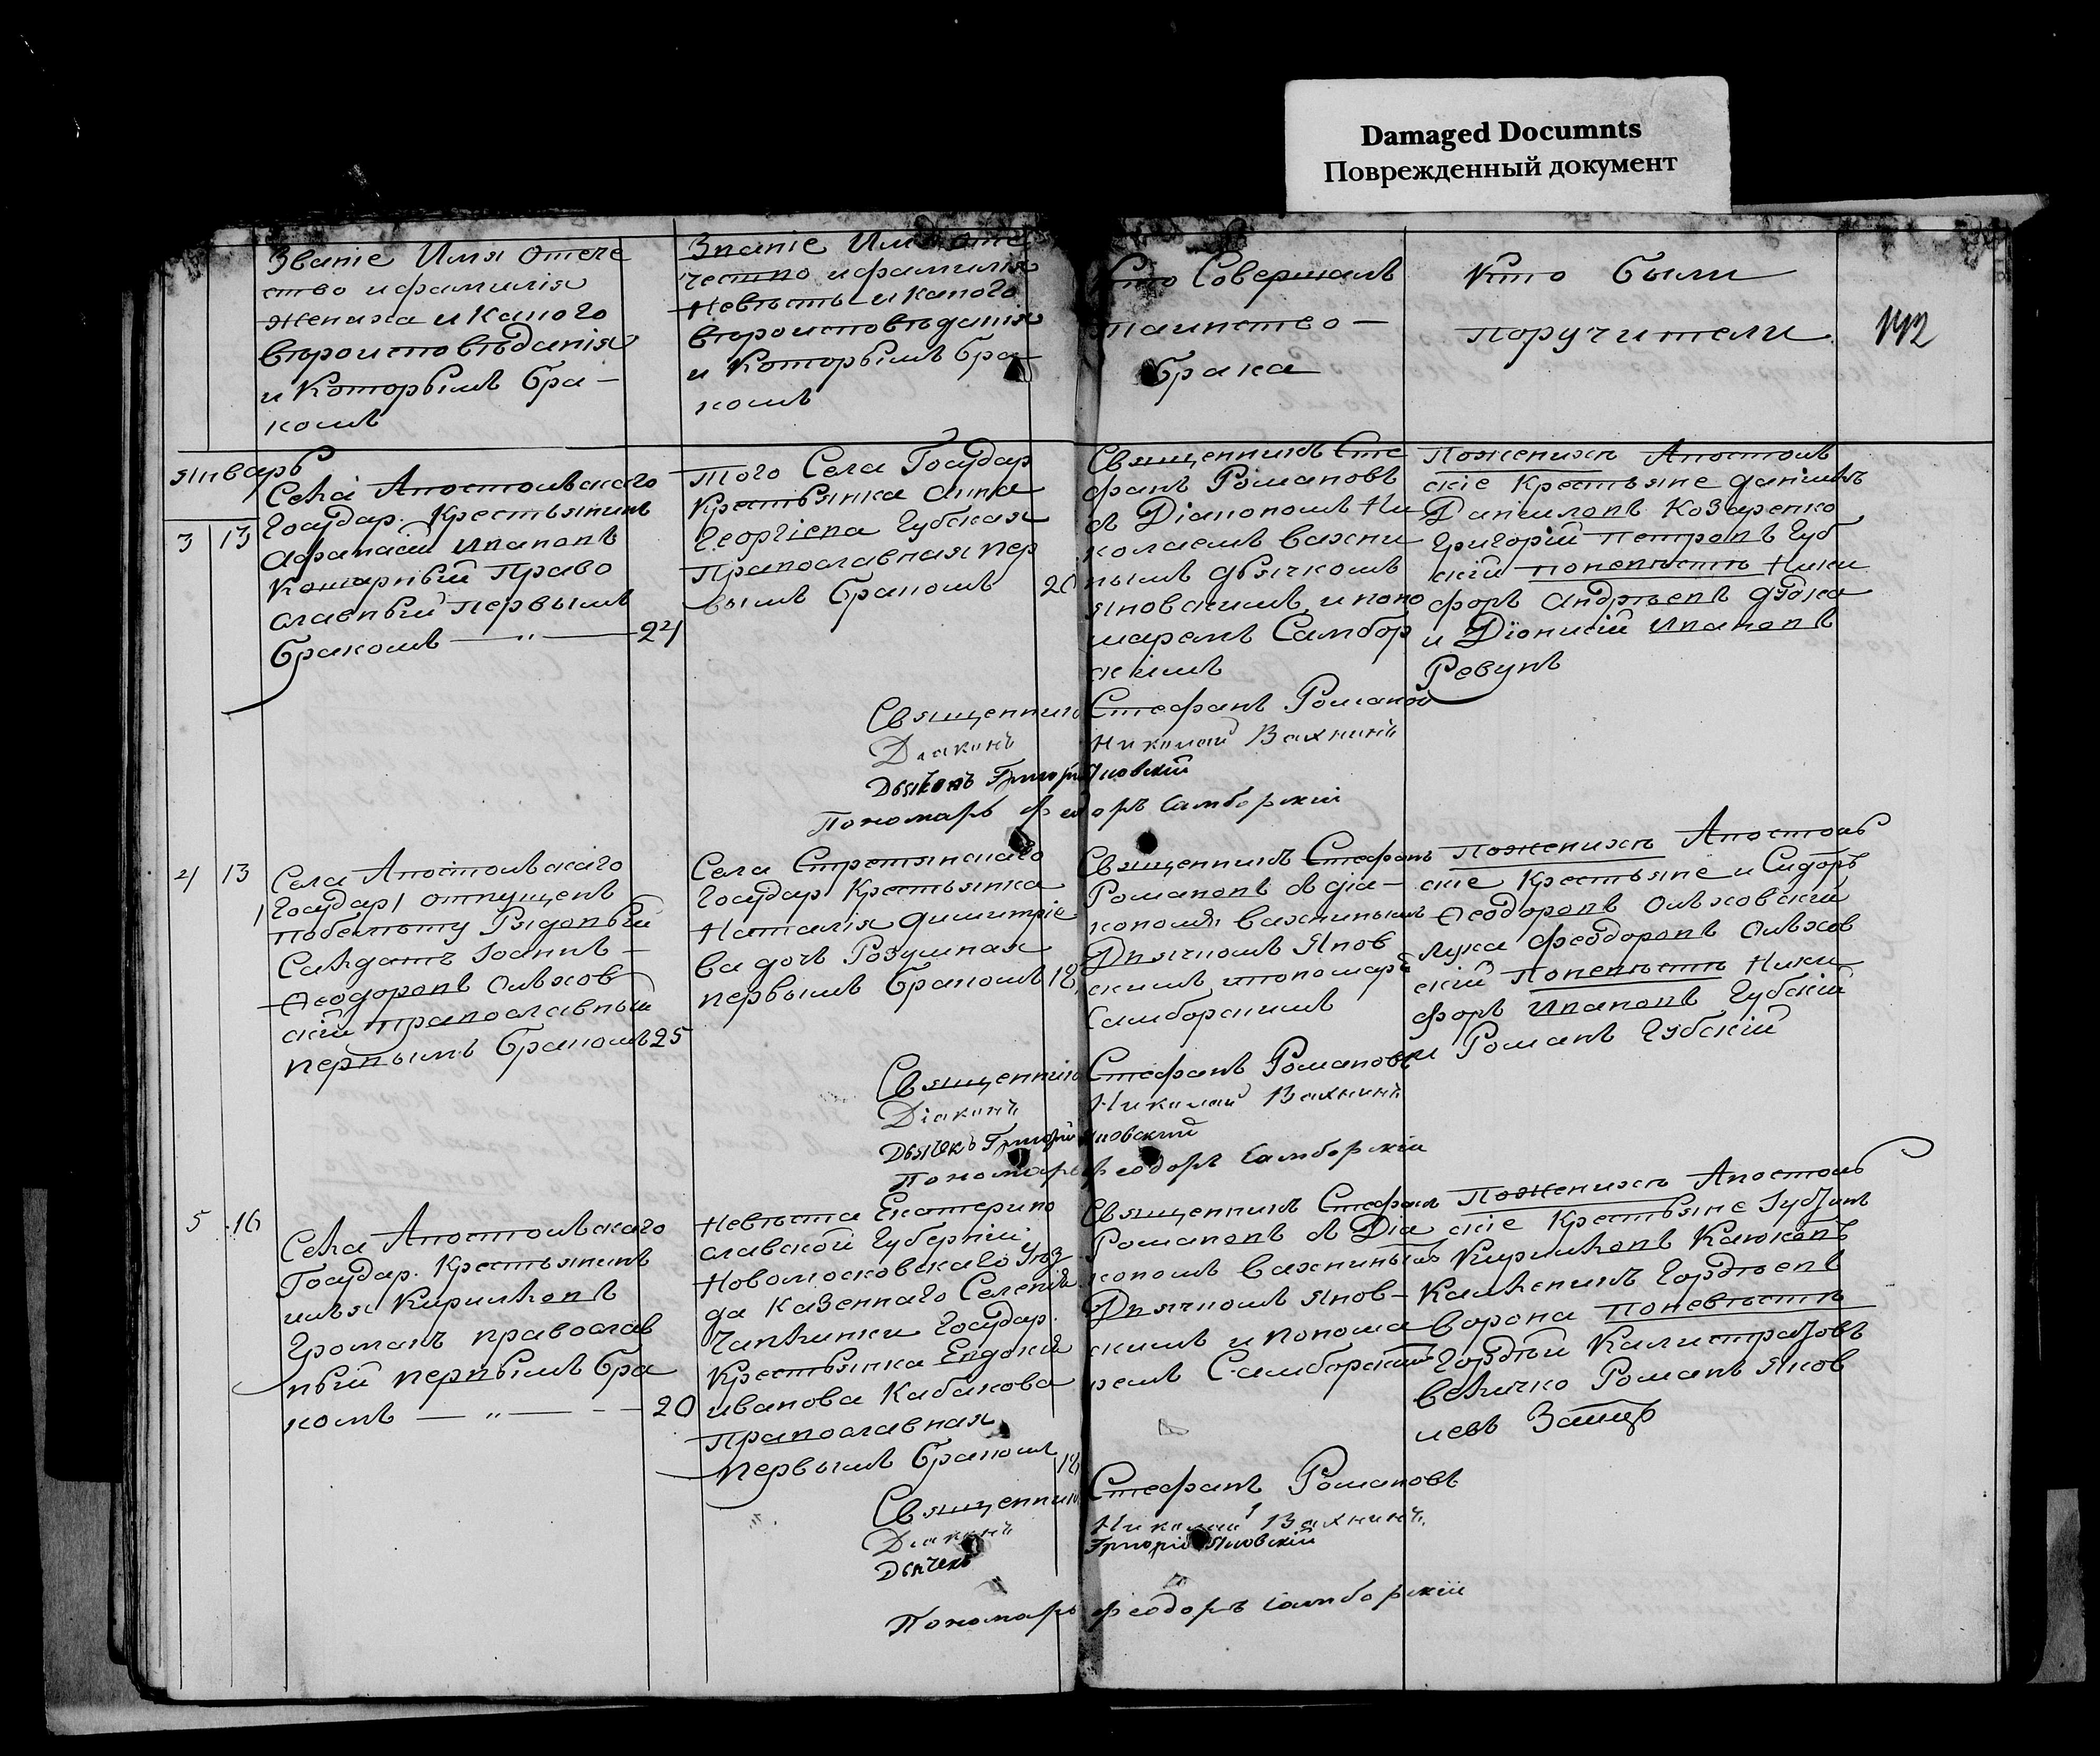 Damaged Documnts
Поврежденный документ
142
Званіе Имя отече
ство и фамилія
жениха и какого
вѣроисповѣданія
и Которымъ бра-
комъ
Званіе Имя оте
чество и фамилія
Невѣсты и какого
вѣроисповѣданія
и Которымъ бра-
комъ
Кто Совершалъ
таинство-
брака
Кто были
поручители
январь
3 13
Села Апостольскаго
Государ. Крестьянинъ
Афанасій Ивановъ
Право
славный первымъ
бракомъ — " — 24
того Села Государ
Крестьянка Анна
Георгіева Губская
Православная пер
вымъ бракомъ 20
Священникъ Сте
фанъ Романовъ
съ Діакономъ Ни
колаемъ Вахни
нымъ дьячкомъ
Яновскимъ и поно
маремъ Самбор
скимъ
Поженихѣ Апостоль
скіе Крестьяне
Даниловъ Козаренко
Григорій Петровъ Губ
скій поневѣстѣ Ники
форъ Андреевъ
и Діонисій Ивановъ
Ревунъ
Священникъ Стефанъ Романов
Діаконъ Николай Вахнинъ
Дьячекъ Григорій Яновскій
Пономарь Феодоръ Самборскій
4 13
Села Апостольскаго
Государ отпущенъ
побелету Рядовый
Салдатъ Іоаннъ-
Ѳеодоровъ Ольхов
скій православный
первымъ бракомъ 25
Села Стретянскаго
Государ Крестьянка
Наталія Димитріе
ва дочь Розумная
первымъ бракомъ 18
Священникъ Стефанъ
Романовъ съ діа-
кономъ Вахнинымъ
Дьячкомъ Янов
скимъ
Самборскимъ
Поженихѣ Апостоль
скіе Крестьяне Сидоръ
Ѳеодоровъ Ольховскій
Лука Феодоровъ Ольхов
скій Поневѣстѣ Ники
форъ Ивановъ Губскій
и Романъ Губскій
Священникъ Стефанъ Романовъ
Діаконъ Николай Вахнинъ
Дьячекъ Григорій Яновскій
Пономарь Феодоръ Самборскій
5 16
Села Апостольскаго
Государ. Крестьянинъ
Илья Кириловъ
Громакъ православ
ный первымъ бра
комъ — " — - - 20
Невѣста Екатерино
славской Губерніи
Новомосковскаго Уѣз
да Казеннаго Селенія
Чаплинки Государ.
Крестьянка Евдокія
Иванова Кабакова
Православная
первымъ бракомъ 18
Священникъ Стефанъ
Романовъ съ Діа
кономъ Вахнинымъ
Дьячкомъ Янов-
скимъ и понома
ремъ Самборскимъ
Поженихѣ Апостоль
скіе Крестьяне
Кириловъ
Гордѣевъ
Ворона поневѣстѣ
Гордѣй Калистратовъ
Величко Романъ Яков
левъ
Священникъ Стефанъ Романовъ
Діаконъ Николай Вахнинъ
Дьячекъ Григорій Яновскій
Пономарь Феодоръ Самборскій